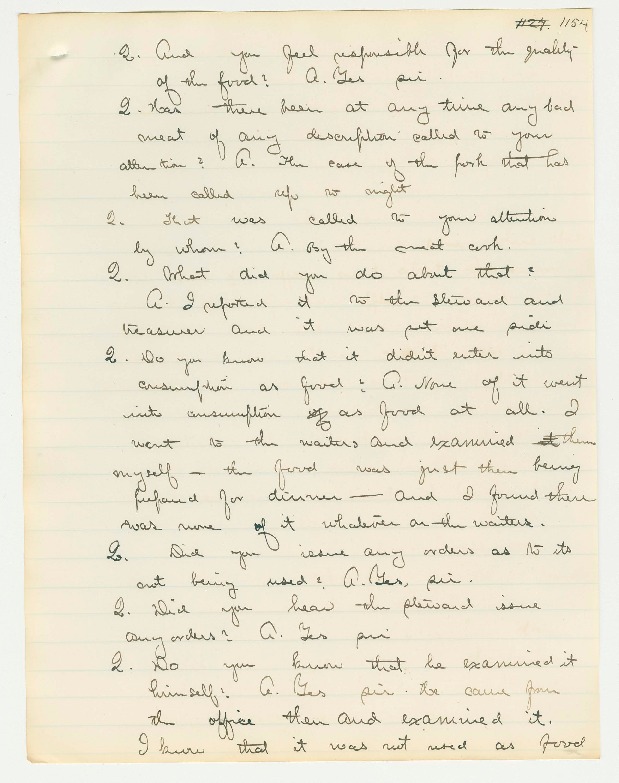 #27. 1154
Q. And you feel responsible for the quality
of the food? A. Yes sir.
Q. Has there been at any time any bad
meat of any description called to your
attention? A. The case of the pork that has
been called up to night
Q. That was called to your attention
by whom? A. By the meat cook.
Q. What did you do about that?
A. I reported it to the Steward and
treasurer and it was put one side
Q. Do you know that it didn't enter into
consumption as food? A. None of it went
into consumption as food at all. I
went to the waiters and examined them
myself – the food was just then being
prepared for dinner – and I found there
was none of it whatever on the waiters.
Q. Did you issue any orders as to its
not being used? A. Yes, sir.
Q. Did you hear the steward issue
any orders? A. Yes sir
Q. Do you know that he examined it
himself? A. Yes sir. He came from
the office then and examined it.
I know that it was not used as food